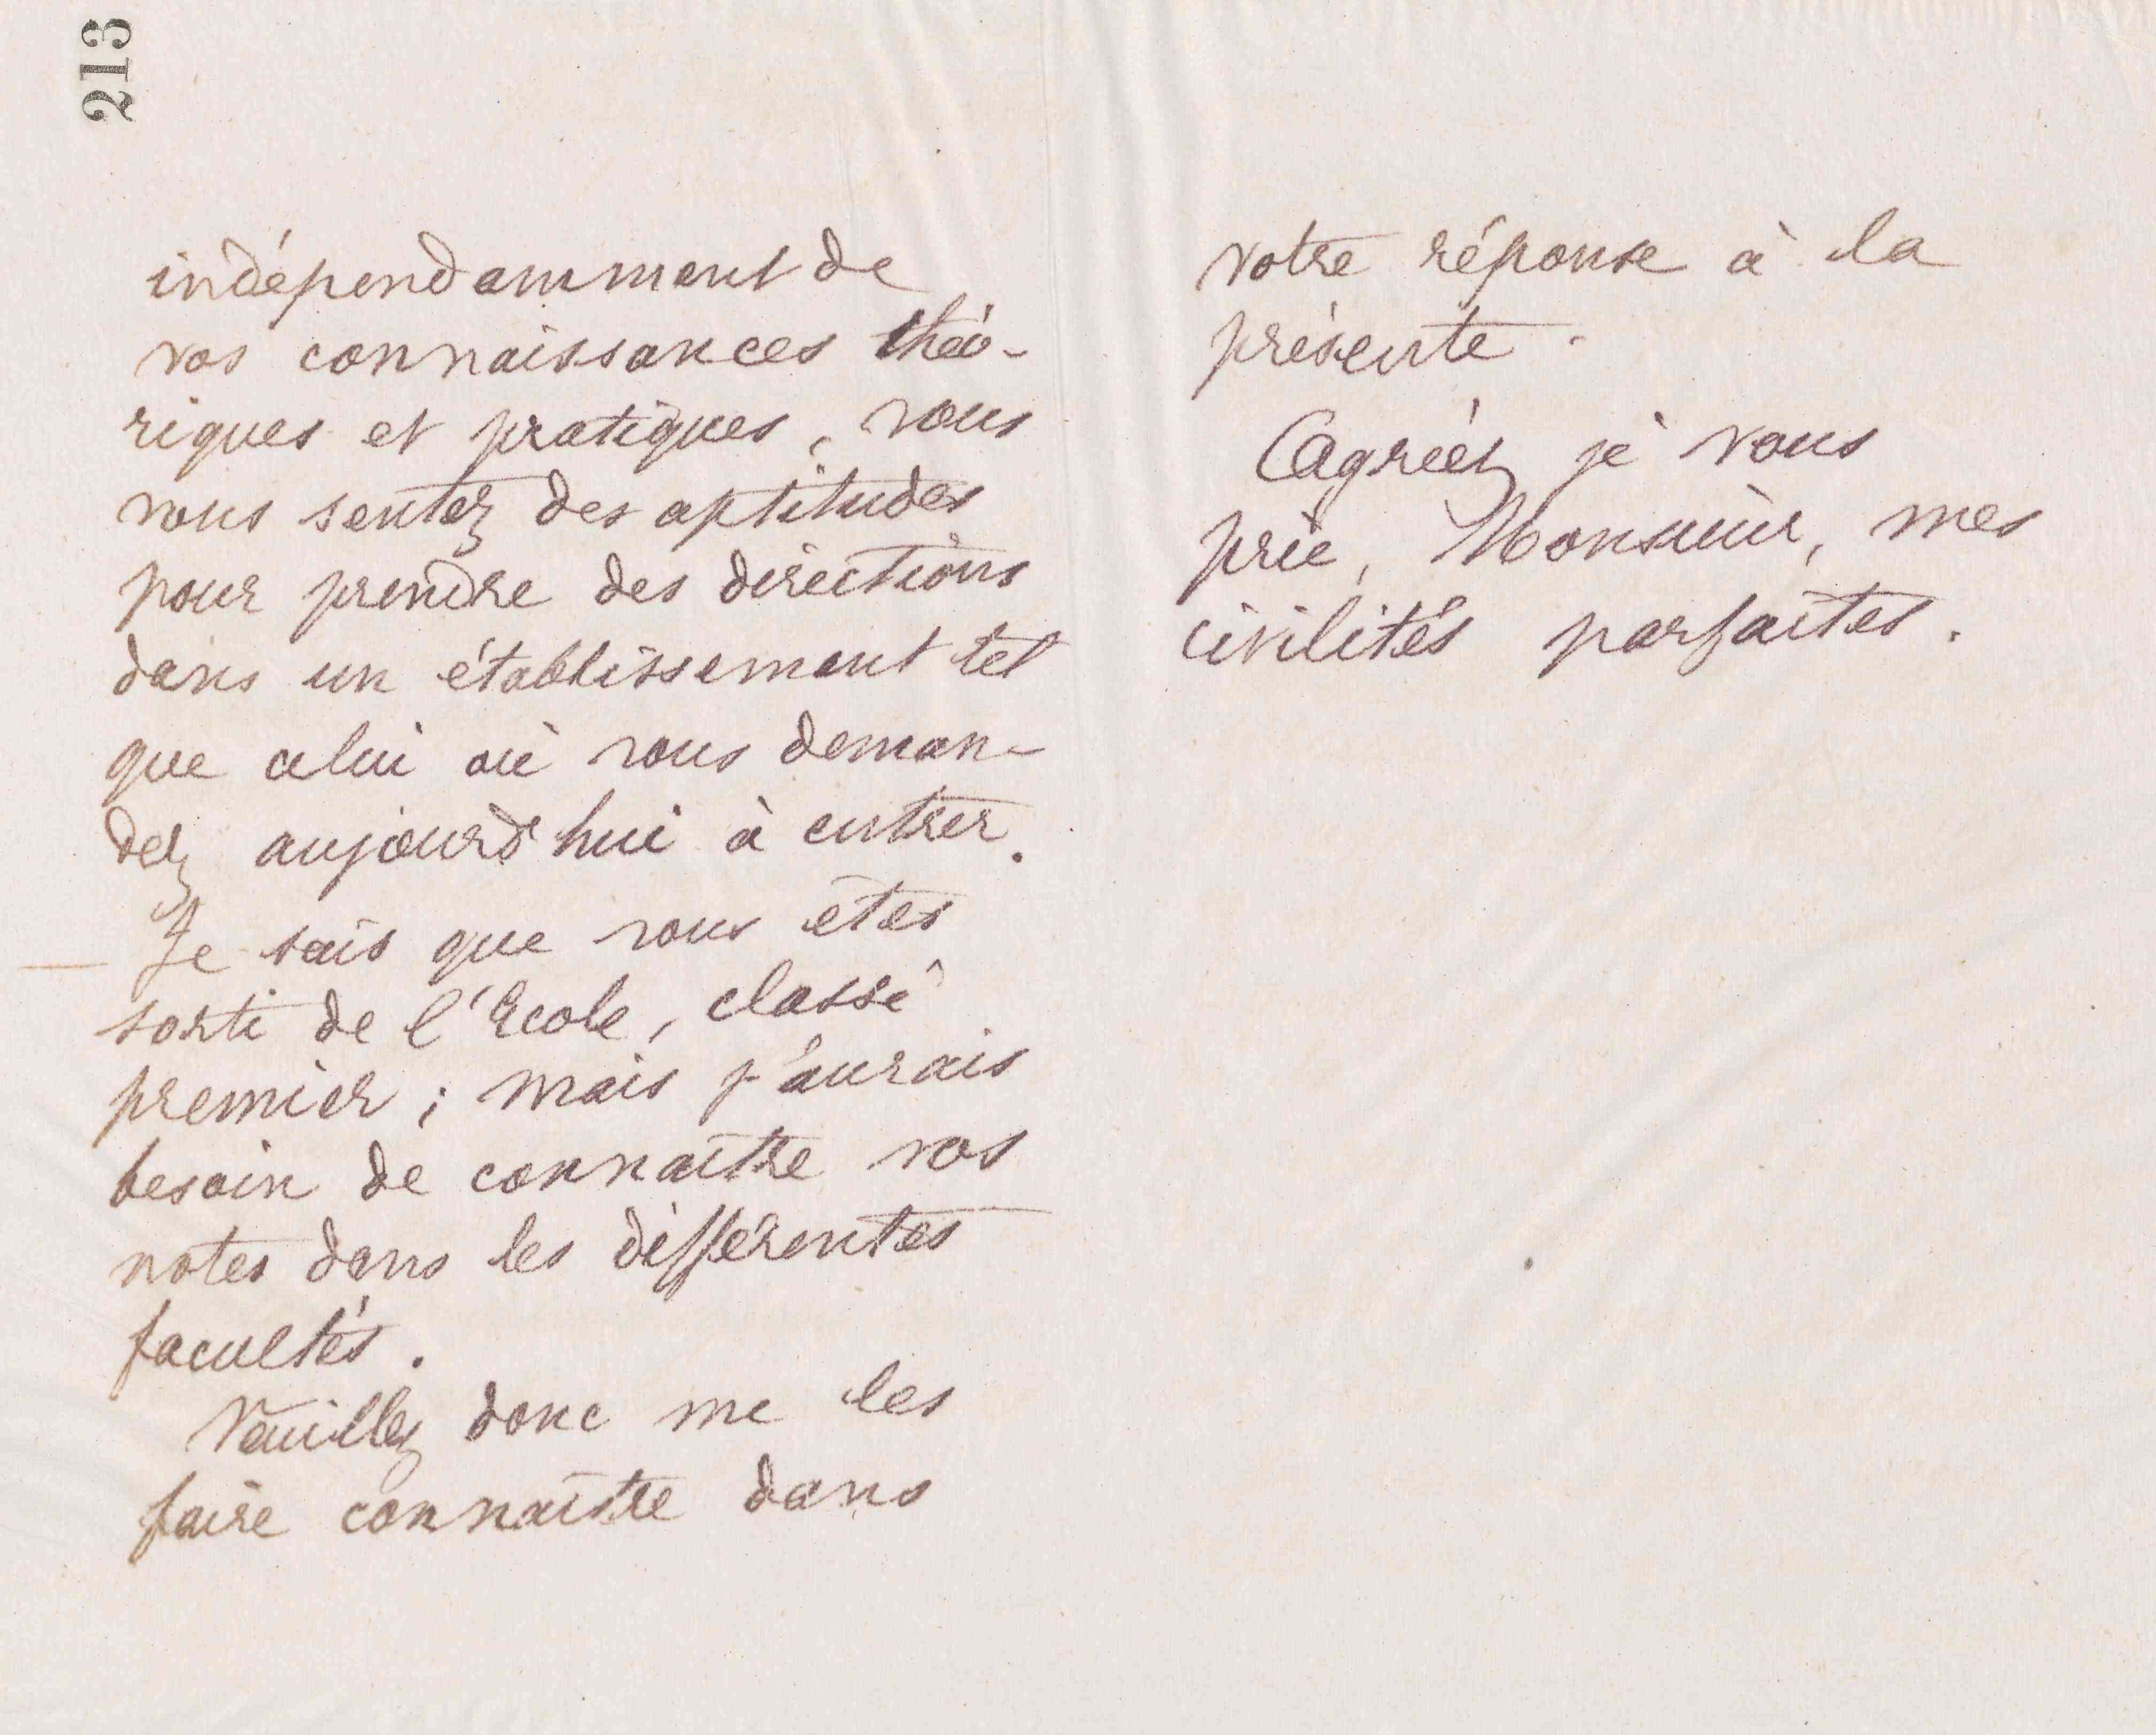 213
indépendamment de
vos connaissances théo-
riques et pratiques, vous
vous sentez des aptitudes
pour prendre des directions
dans un établissement tel
que celui où vous deman-
dez aujourd'hui à entrer.
Je sais que vous êtes
sorti de l'Ecole, classé
premier ; mais j'aurais
besoin de connaitre vos
notes dans les différentes
facultés.
Veuillez donc me les
faire connaitre dans
votre réponse à la
présente.
Agréez, je vous
prie, Monsieur, mes
civilités parfaites.